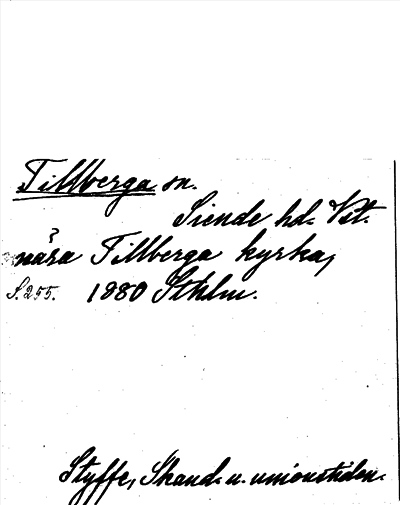 Tillberga sn.
Siende hd. Vstm.
nära Tillberga kyrka,
S. 255. 1880 Sthlm.
Styffe, Skand. u. unionstiden.